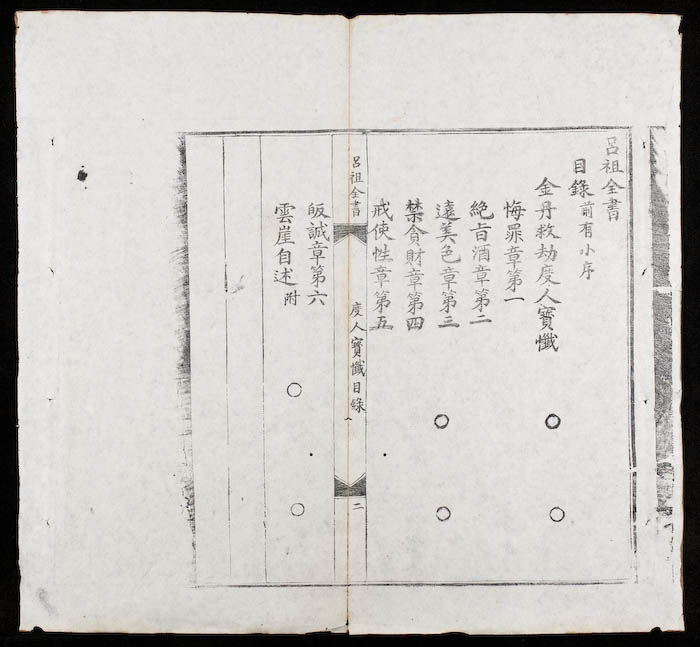 呂祖全書
目錄 前有小序
金丹救劫度人寶懺
悔罪章第一
絶旨酒章第二
遠美色章第三
禁貪財章第四
戒使性章第五
呂祖全書 度人寶懺目錄 二
皈誠章第六
雲崖自述 附